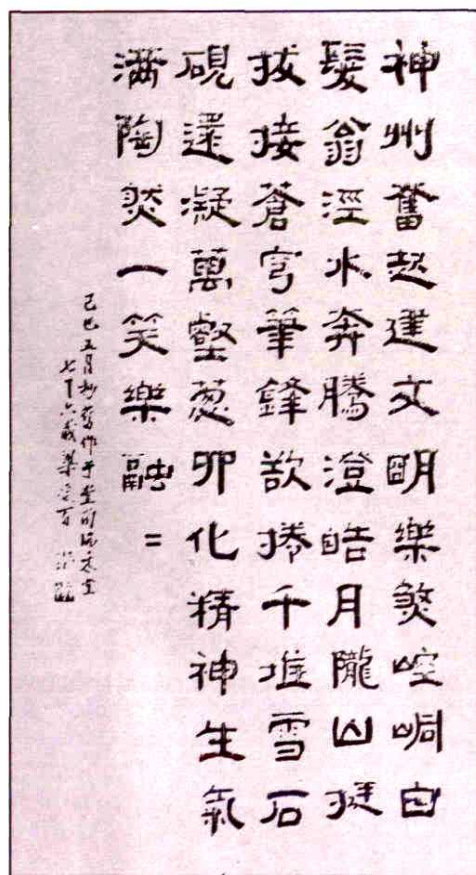 神州奮起建文明樂煞崆峒白
髮翁涇水奔騰澄皓月隴山挺
拔接蒼穹筆鋒欲捲千堆雪石
硯還凝萬壑葱卯化精神生氣
滿陶然一笑樂融=
己巳五月抄舊作于
七十六歲梁